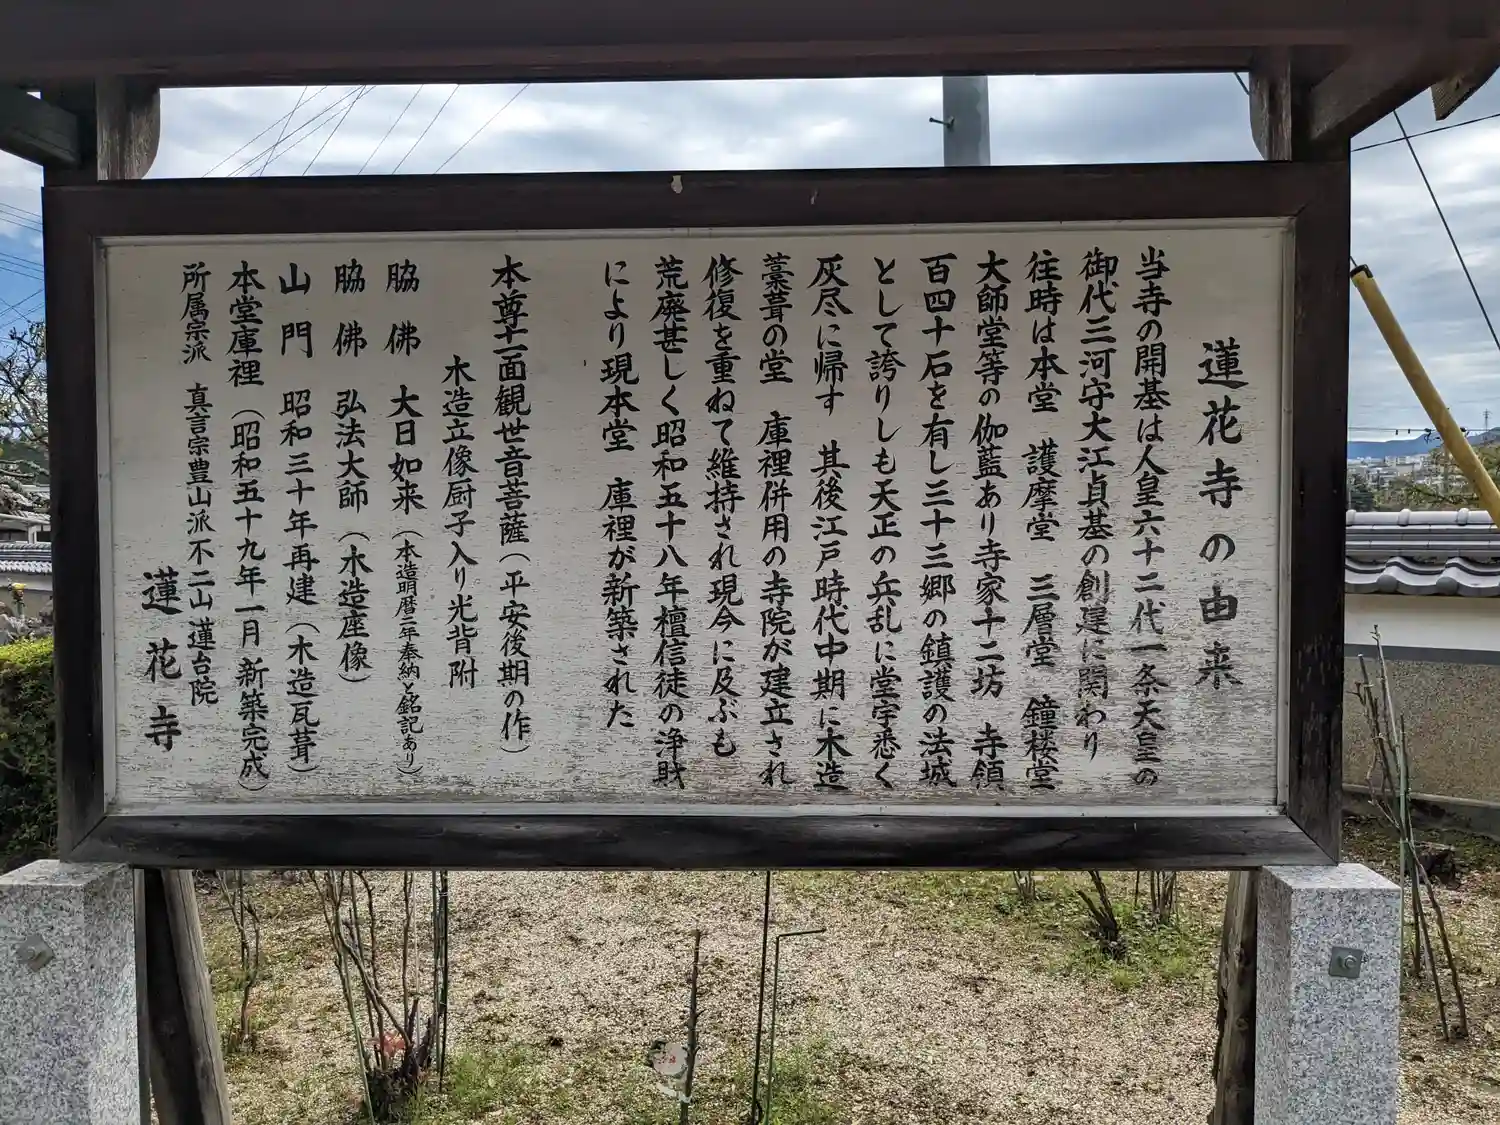 蓮花寺の由来
当寺の開基は人皇六十二代一条天皇の
御代三河守大江貞基の創建に関わり
往時は本堂　護摩堂　三層堂　鐘楼堂
大師堂等の伽藍あり寺家十二坊　寺領
百四十石を有し三十三郷の鎮護の法城
として誇りしも天正の兵乱に堂宇悉く
灰尽に帰す　其後江戸時代中期に木造
藁葺の堂　庫裡併用の寺院が建立され
修復を重ねて維持され現今に及ぶも
荒廃甚しく昭和五十八年檀信徒の浄財
により現本堂　庫裡が新築された
本尊十一面観世音菩薩（平安後期の作）
木造立像厨子入り光背附
脇佛　大日如来（本造明暦二年奉納と銘記あり）
脇佛　弘法大師（木造座像）
山門　昭和三十年再建（木造瓦葺）
本堂庫裡（昭和五十九年一月新築完成）
所属宗派　真言宗豊山派不二山蓮台院
蓮花寺